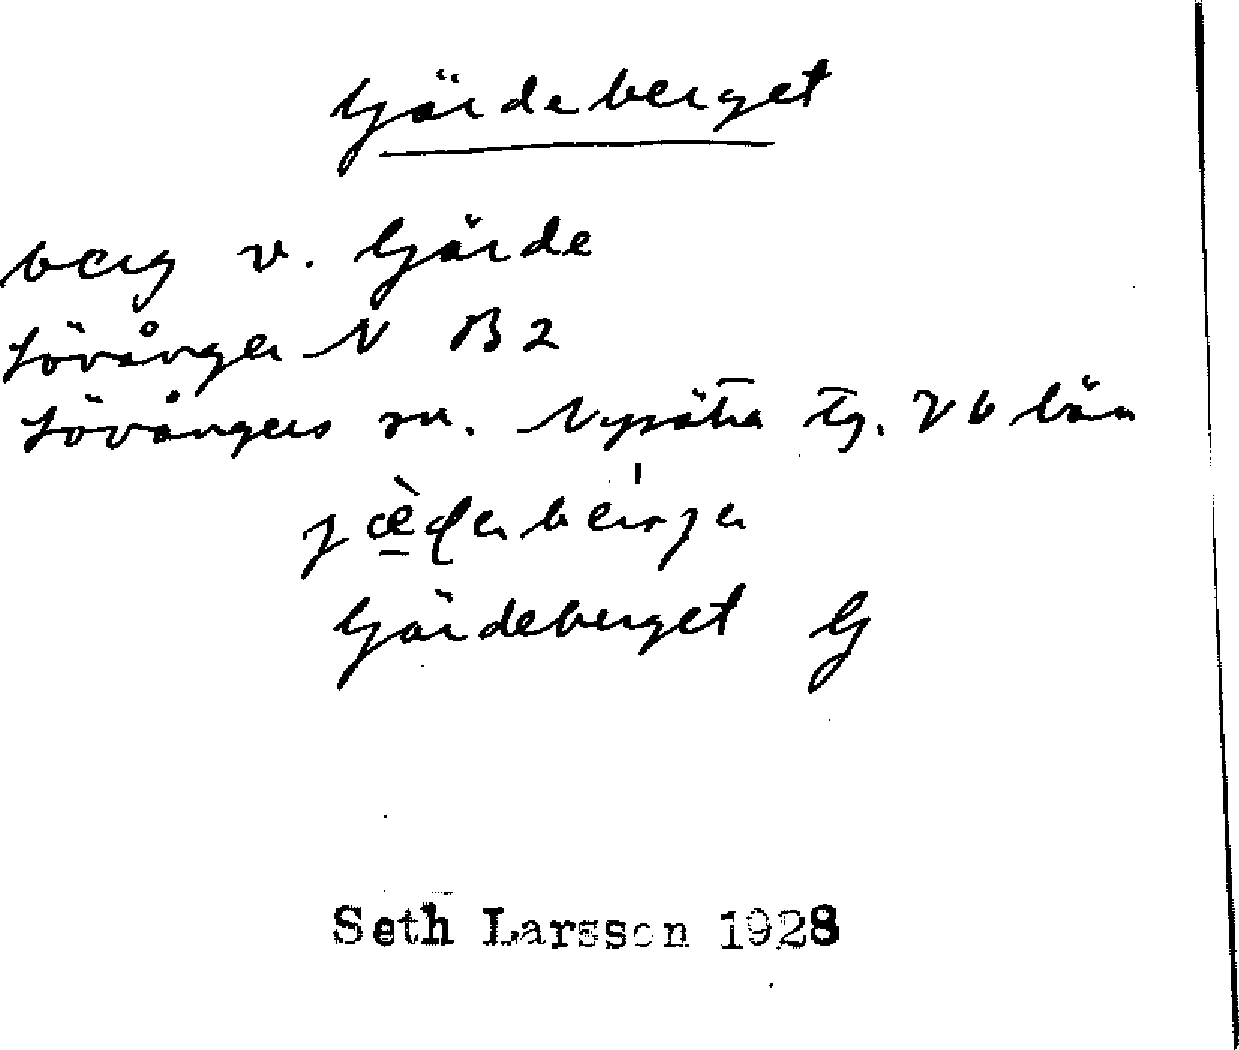 Gärdeberget
berg v. Gärde
Lövånger N B2
Lövångers sn. Nysätra tg. Vb län
Gärdeberget G
Seth Larsson 1928